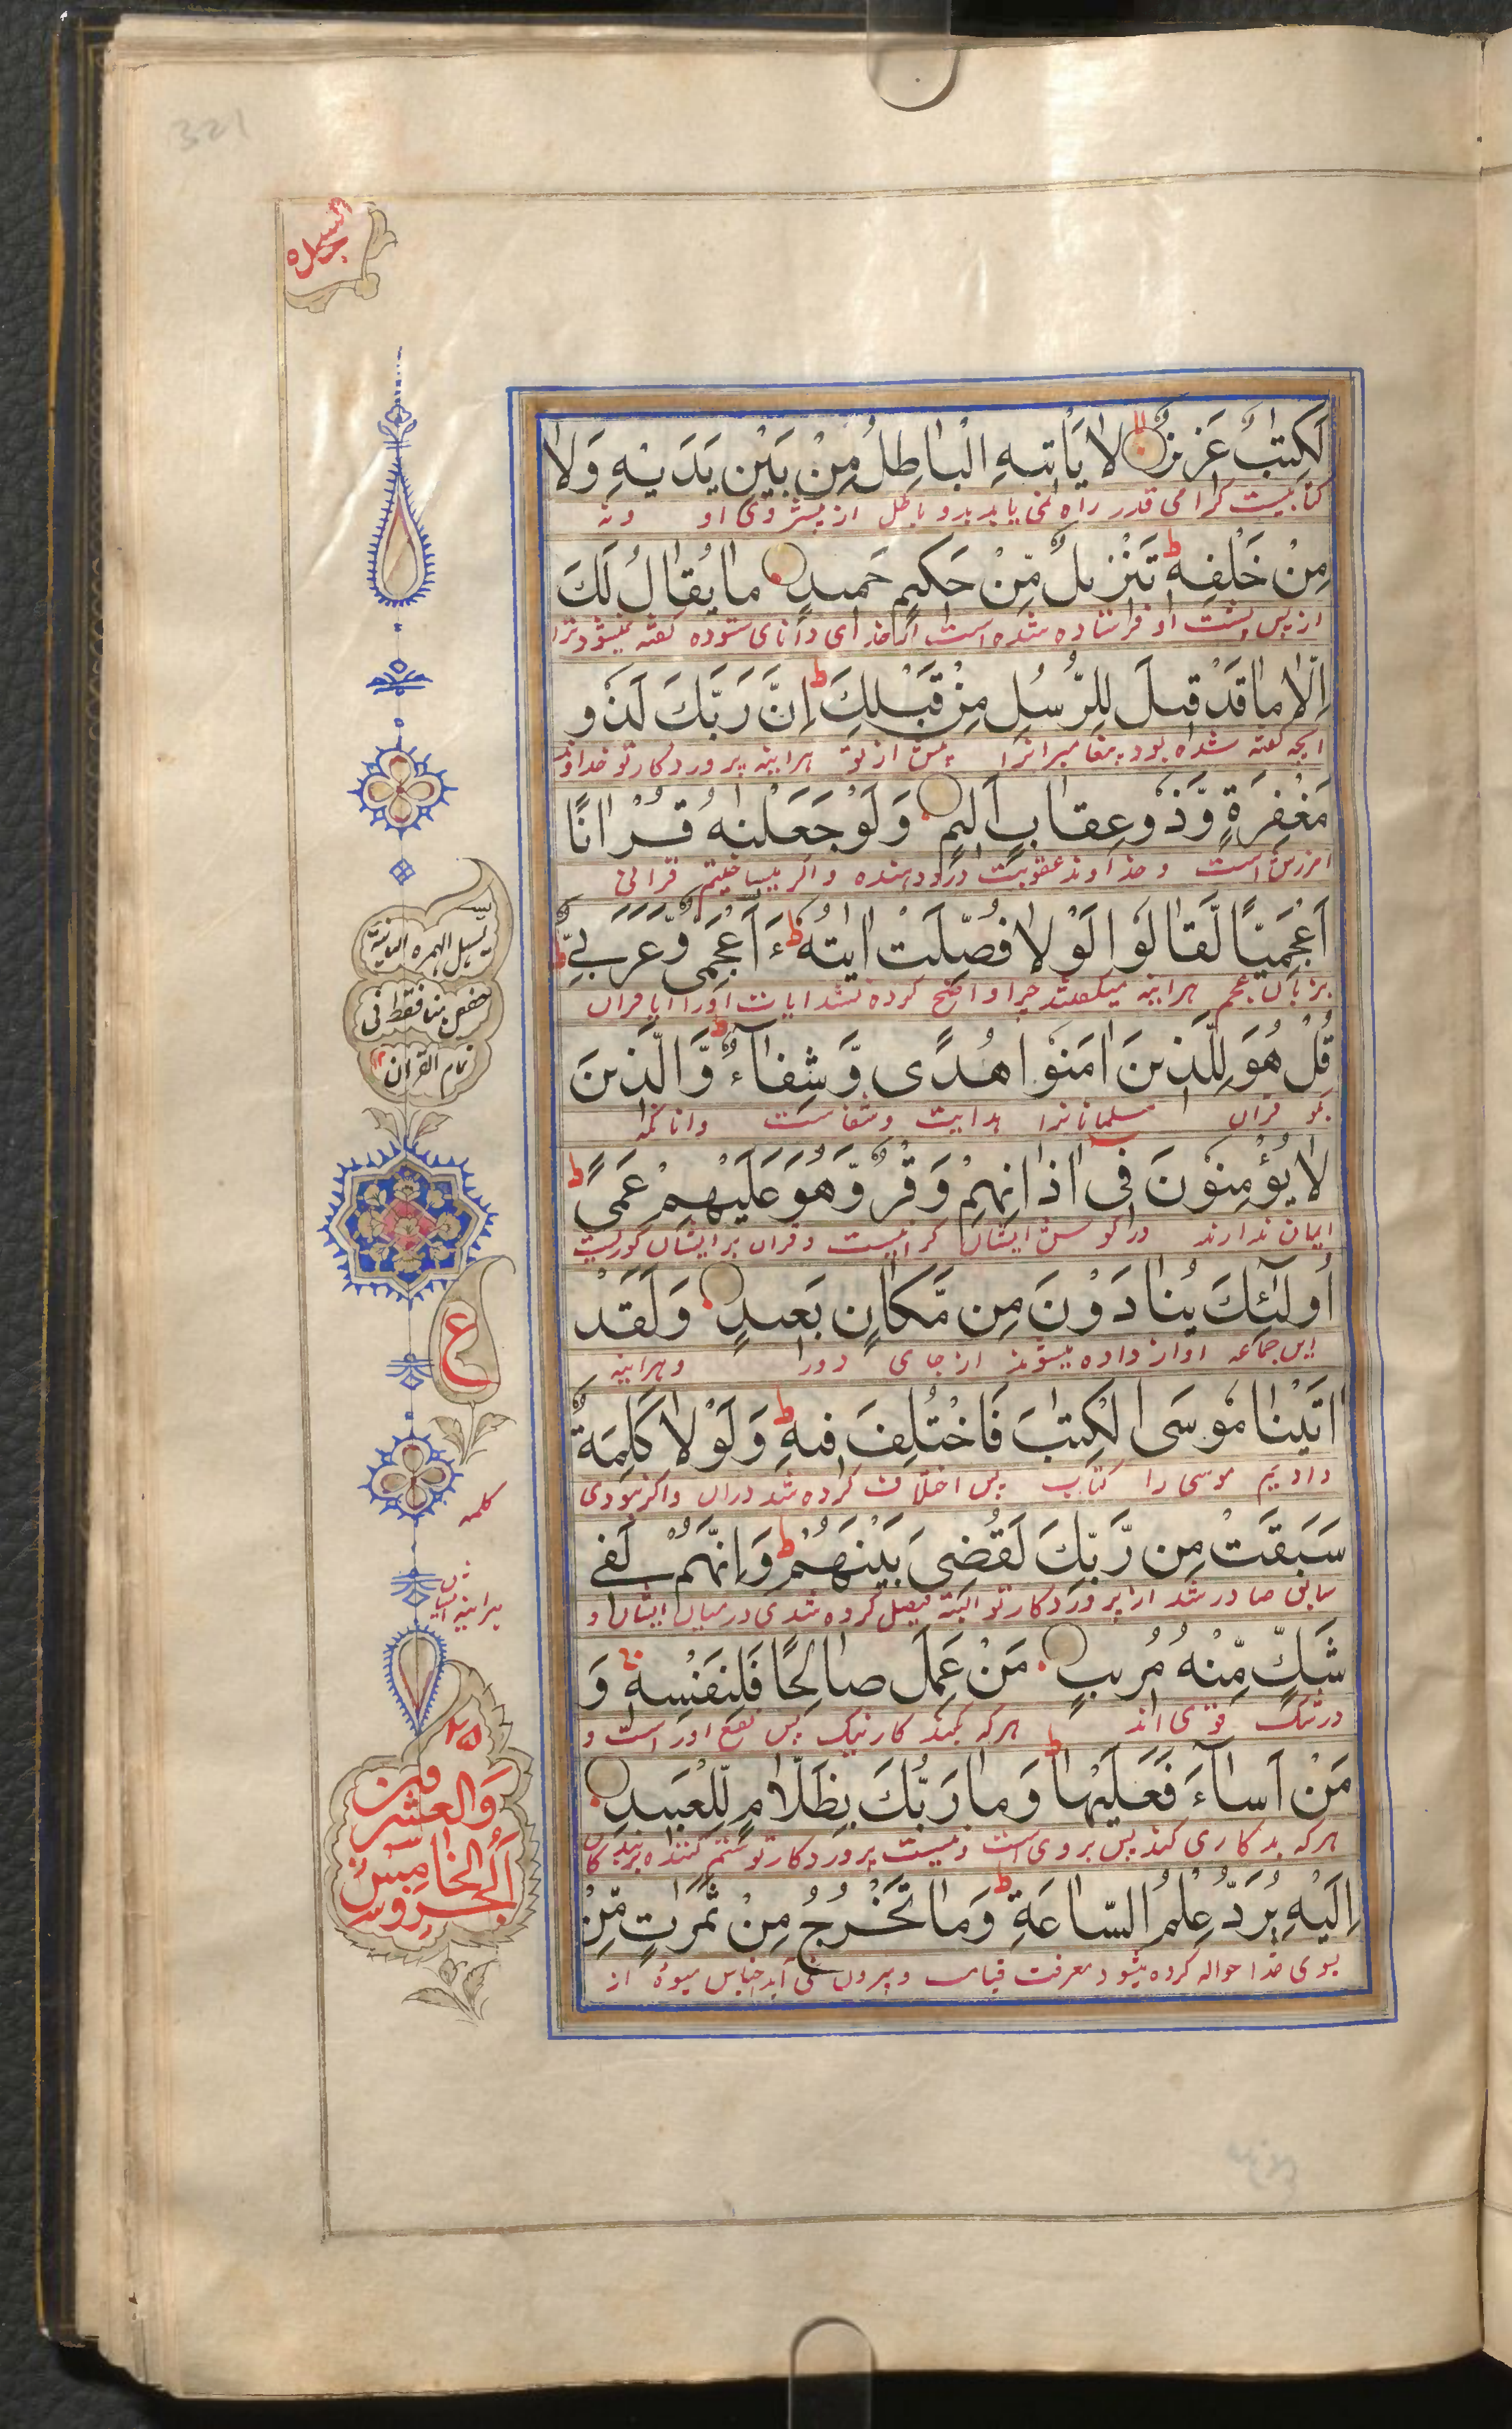 321
السجدة
لَكِتٰبٌ عَزِيزٌ لَا يَأْتِيهِ الْبَاطِلُ مِنْ بَيْنِ يَدَيْهِ وَلَا
کتابیست گرامی قدر راه نمی یابد بدو باطل از پیش روی او و نه
مِنْ خَلْفِهٖ ط تَنْزِيلٌ مِّنْ حَكِيمٍ حَمِيدٍ مَا يُقَالُ لَكَ
از پس پشت او فرستاده شده است از خدای دانای ستوده گفته نمیشود ترا
اِلَّا مَا قَدْ قِيلَ لِلرُّسُلِ مِنْ قَبْلِكَ ط اِنَّ رَبَّكَ لَذُو
انچه گفته شده بود پیغامبرانرا پیش از تو هراینه پروردکار تو خداوند
مَغْفِرَةٍ وَّذُو عِقَابٍ اَلِيمٍ وَلَوْ جَعَلْنٰهُ قُرْاٰنًا
امرزش است و خداوند عقوبت درد دهنده و اگر میساختیم قرانی
اَعْجَمِيًّا لَّقَالُوا لَوْلَا فُصِّلَتْ اٰيٰتُهٗ ط ءَاَعْجَمِيٌّ وَّعَرَبِيٌّ ط
بزبان عجم هراینه میگفتند چرا واضح کرده نشد ایات اورا ایا قران
قُلْ هُوَ لِلَّذِينَ اٰمَنُوا هُدًى وَّشِفَآءٌ ط وَّالَّذِينَ
بگو قران مسلمانانرا هدایت و شفاست و انانکه
لَا يُؤْمِنُونَ فِي اٰذَانِهِمْ وَقْرٌ وَّهُوَ عَلَيْهِمْ عَمًى ط
ایمان ندارند در گوش ایشان گرانیست و قران بر ایشان کوریست
اُولٰٓئِكَ يُنَادَوْنَ مِن مَّكَانٍ بَعِيدٍ وَلَقَدْ
این جماعه اواز داده میشوند از جای دور و هراینه
اٰتَيْنَا مُوسَى الْكِتٰبَ فَاخْتُلِفَ فِيهِ ط وَلَوْلَا كَلِمَةٌ
دادیم موسی را کتاب پس اختلاف کرده شد دران و اگر نبودی
سَبَقَتْ مِن رَّبِّكَ لَقُضِيَ بَيْنَهُمْ ط وَاِنَّهُمْ لَفِي
سابق صادر شد از پروردکار تو البته فیصل کرده شدی درمیان ایشان و
شَكٍّ مِّنْهُ مُرِيبٍ مَنْ عَمِلَ صَالِحًا فَلِنَفْسِهٖ وَ
در شک قوی اند هرکه بکند کار نیک پس نفع اوراست و
مَنْ اَسَآءَ فَعَلَيْهَا ط وَمَا رَبُّكَ بِظَلَّامٍ لِّلْعَبِيدِ
هرکه بدکاری کند پس بروی است و نیست پروردکار تو ستم کننده بر بندکان
اِلَيْهِ يُرَدُّ عِلْمُ السَّاعَةِ ط وَمَا تَخْرُجُ مِنْ ثَمَرٰتٍ مِّنْ
بسوی خدا حواله کرده میشود معرفت قیامت و بیرون نمی آید اجناس میوه از
تسهيل الهمزه الثانية
لحفص هنا فقط فى
تمام القران
ع
کلمه
هراینه ایشان
٢٥
والعشرون
الخامس
الجزو